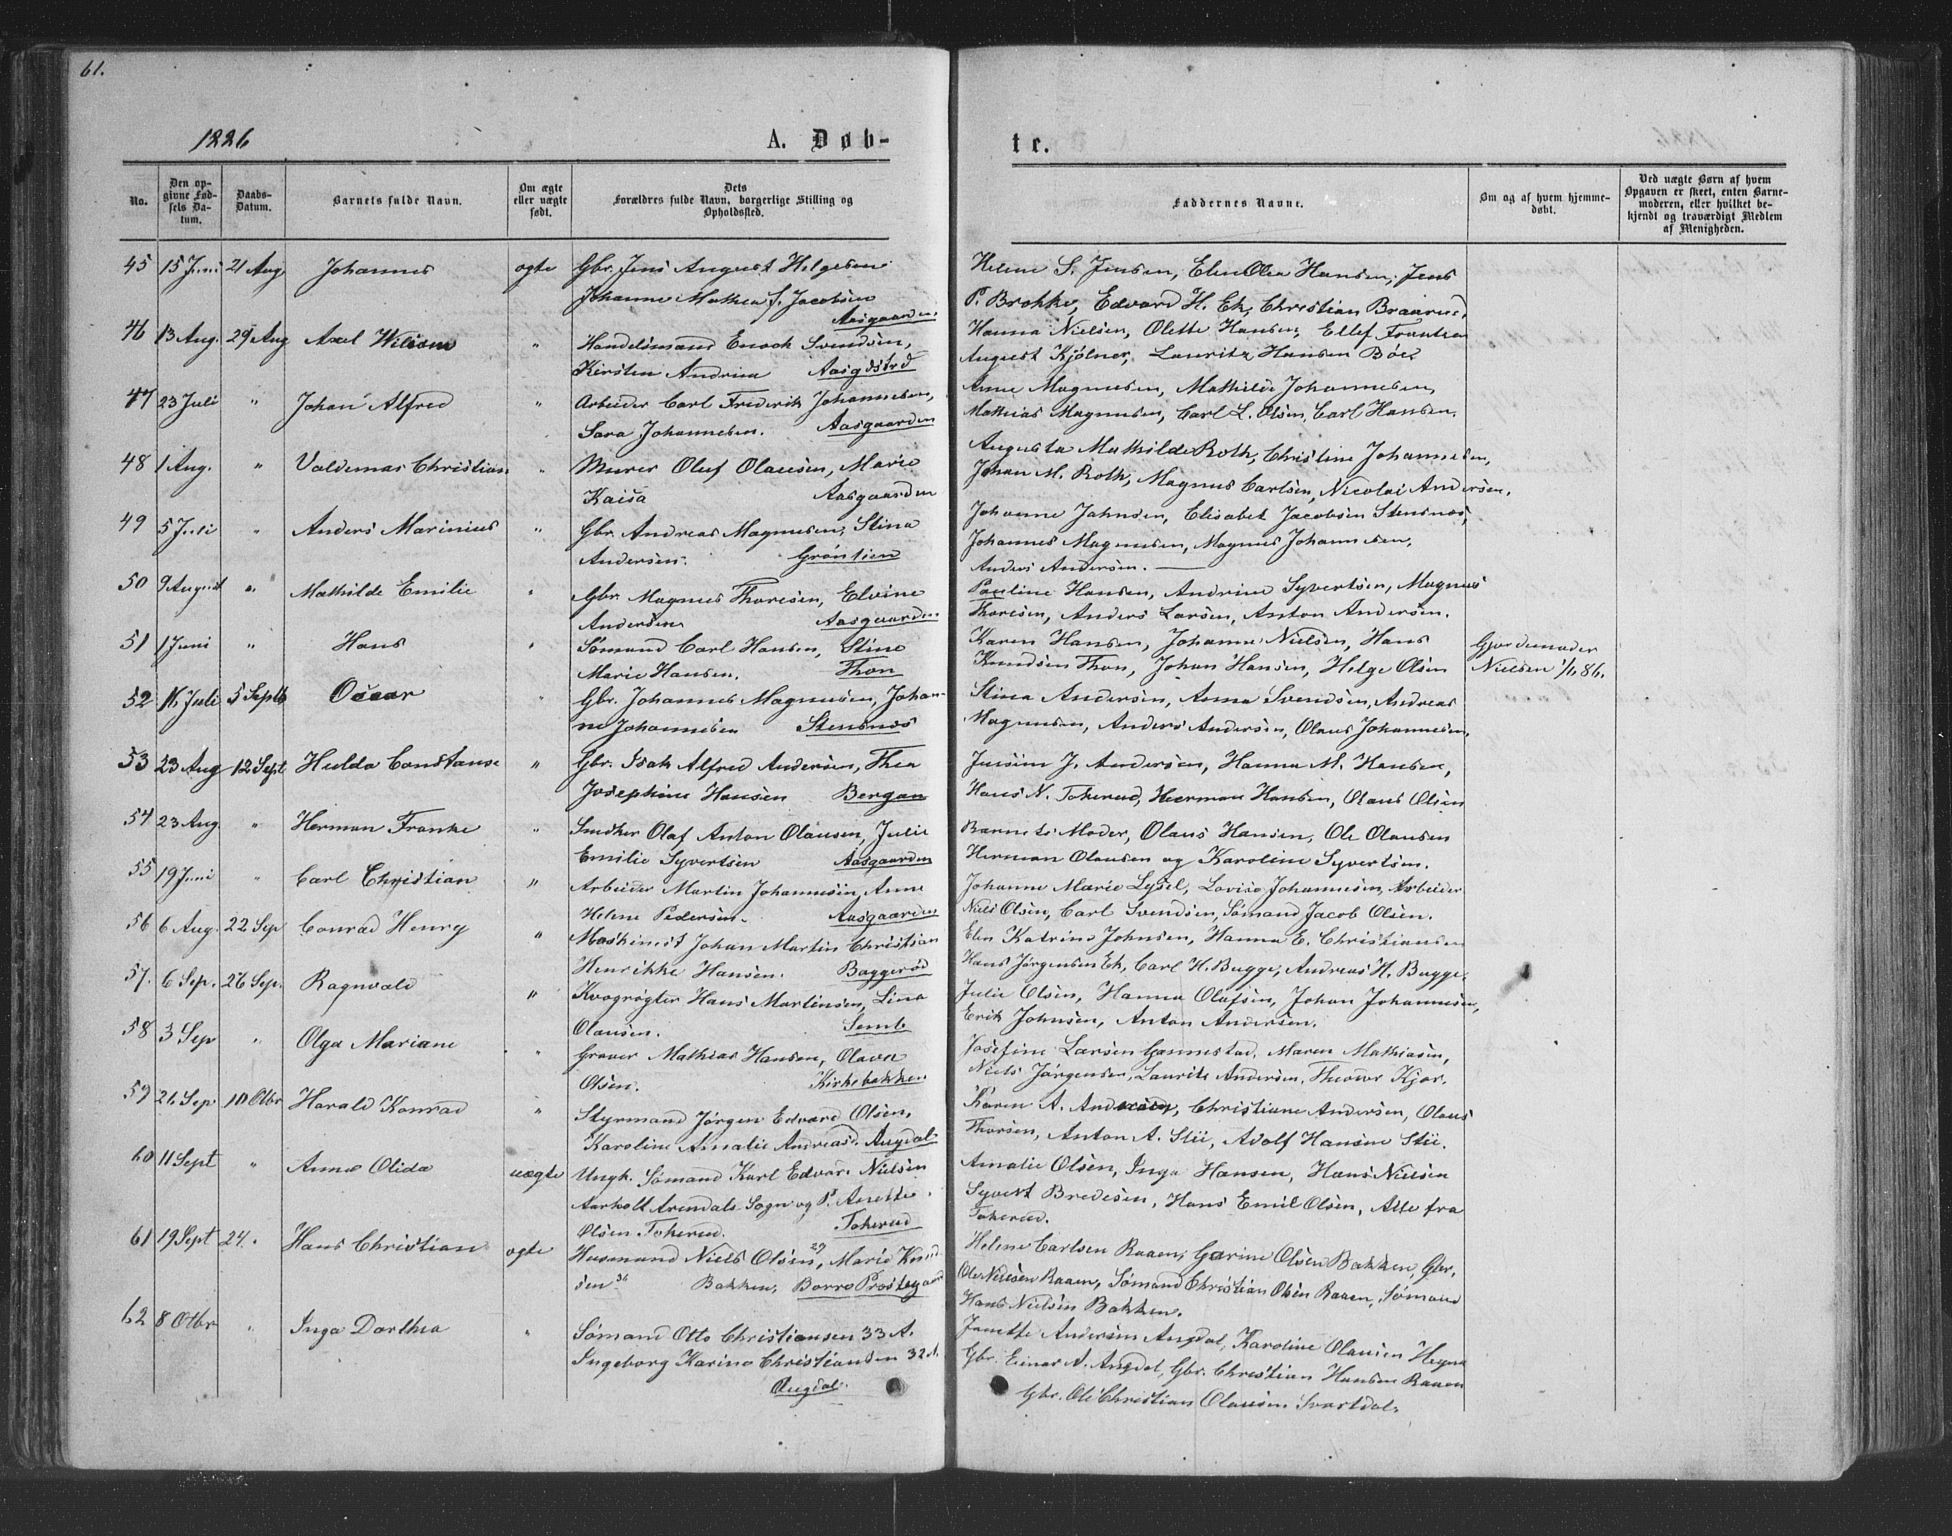 61.
1886
A. Døb-
te.
No.
Den op-
givne Fød-
sels Da-
tum.
Daabs-
Datum.
Barnets fulde Navn.
Om ægte
eller uægte
født.
Dets
Forældres fulde Navn, borgerlige Stilling og
Opholdssted.
Faddernes Navne.
Om og af hvem hjemme-
døbt.
Ved uægte Børn af hvem
Opgaven er skeet, enten Barne-
moderen, eller hvilket be-
kjendt og troværdigt Medlem
af Menigheden.
45 15 Juni 21 Aug. Johannes ægte Gbr. Jens August Helgesen
Johanne Mathea f. Jacobsen
Aasgaarden.
Helene S. Jensen, Elen Olea Hansen, Jens
P. Brokke, Edvard H. Ek, Christian Braarud.
46 13 Aug. 29 Aug Axel Wiliam " Handelsmand Enock Svendsen,
Kirsten Andrina Aasgdstrd
Hanna Nielsen, Olette Hansen, Ellef Frantsen
August Kjølner, Lauritz Hansen Bøe.
47 23 Juli " Johan Alfred " Arbeider Carl Frederik Johannesen,
Sara Johannesen. Aasgaarden
Anne Magnusen, Mathilde Johannesen,
Mathias Magnusen, Carl L. Olsen, Carl Hansen.
48 1 Aug. " Valdemar Christian " Murer Oluf Olausen, Marie
Kaisa Aasgaarden
Augusta Mathilde Roth, Christine Johannesen,
Johan M. Roth, Magnus Carlsen, Nicolai Andersen.
49 5 Juli " Anders Marinius " Gbr. Andreas Magnusen, Stina
Andersen. Grøntien
Johanne Jahnsen, Elisabet Jacobsen Stensnæs,
Johannes Magnusen, Magnus Johannesen,
Anders Andersen.
50 9 August " Mathilde Emilie " Gbr. Magnus Thoresen, Elvine
Andersen Aasgaarden
Pauline Hansen, Andrine Syvertsen, Magnus
Thoresen, Anders Larsen, Anton Andersen.
51 1 Juni " Hans " Sømand Carl Hansen, Stine
Marie Hansen. Thon
Karen Hansen, Johanne Nielsen, Hans
Knudsen Thon, Johan Hansen, Helge Olsen
Gjordemoder
Nielsen 1/6 86.
52 16 Juli 5 Septb Oscar " Gbr. Johannes Magnusen, Johan-
ne Johannesen Stensnæs
Stina Andersen, Anna Svendsen, Andreas
Magnusen, Anders Andersen, Olaus Johannesen.
53 23 Aug 12 Sept Hulda Constanse " Gbr. Isak Alfred Andersen, Thea
Josephine Hansen Bergan
J. Andersen, Hanna M. Hansen,
Hans N. Tokerud, Herman Hansen, Olaus Olsen
54 23 Aug. " Herman Franke " Snedker Olaf Anton Olausen, Julie
Emilie Syvertsen Aasgaarden
Barnets Moder, Olaus Hansen, Ole Olausen
Herman Olausen og Karoline Syvertsen.
55 19 Juni " Carl Christian " Arbeider Martin Johannesen, Anne
Helene Pedersen. Aasgaarden
Johanne Marie Lysel, Lovise Johannesen, Arbeider
Niels Olsen, Carl Svendsen, Sømand Jacob Olsen.
56 6 Aug. 22 Sep Conrad Henry " Maskinist Johan Martin Christian
Henrikke Hansen. Baggerød
Elen Katrine Johnsen, Hanna E. Christiansen
Hans Jørgensen Ek, Carl H. Bugge, Andreas H. Bugge.
57. 6 Sep. 26 Sep. Ragnvald " Kvægrøgter Hans Martinsen, Lina
Olausen. Semb
Julie Olsen, Hanna Olafsen, Johan Johannesen,
Erik Johnsen, Anton Andersen.
58 3 Sep " Olga Mariane " Graver Mathias Hansen, Olava
Olsen. Kirkebakken
Josefine Larsen Gannestad, Maren Mathiasen,
Niels Jørgensen, Laurits Andersen, Theodor Kjær.
59 26 Sep 10 Otbr Harald Konrad " Styrmand Jørgen Edvard Olsen,
Karoline Amalie Andreasd. Augdal
Karen A. Andersen, Christiane Andersen, Olaus
Thorsen, Anton A. Stii, Adolf Hansen Stii.
60 11 Sept " Anna Olida uægte Ungk. Sømand Karl Edvard Nielsen
Aarholt Arendals Sogn og P. Anette
Olsen Tokerud. Tokerud
Amalie Olsen, Inga Hansen, Hans Nielsen
Syvert Bredesen, Hans Emil Olsen, Alle fra
Tokerud.
61 19 Sept 24. Hans Christian ægte Husmand Niels Olsen 29, Marie Knud-
sen 36 Bakken, Borre Prostegaard
Helene Carlsen Raaen, Garine Olsen Bakken, Gbr.
Ole Nielsen Raaen, Sømand Christian Olsen Raaen, Sømand
Hans Nielsen Bakken.
62 8 Otbr " Inga Dorthea " Sømand Otto Christiansen 33 A.
Ingeborg Karine Christiansen 32 A.
Augdal.
Janette Andersen Augdal, Karoline Olausen
Gbr. Einar A. Augdal, Gbr. Christian Hansen Raaen
Gbr. Ole Christian Olausen Svartdal.